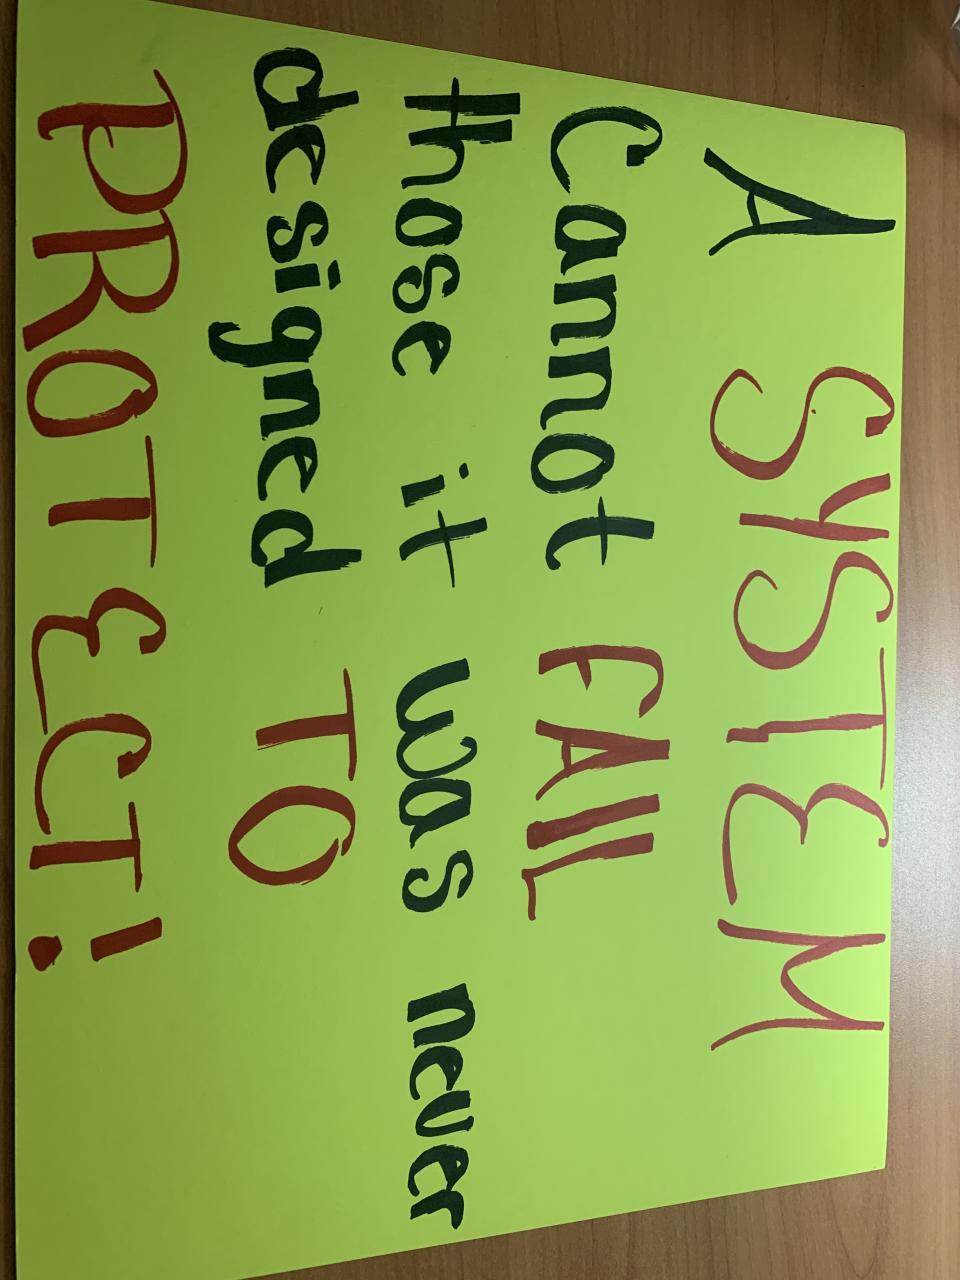 A SYSTEM
Cannot FAIL
those it was never
designed TO
PROTECT!